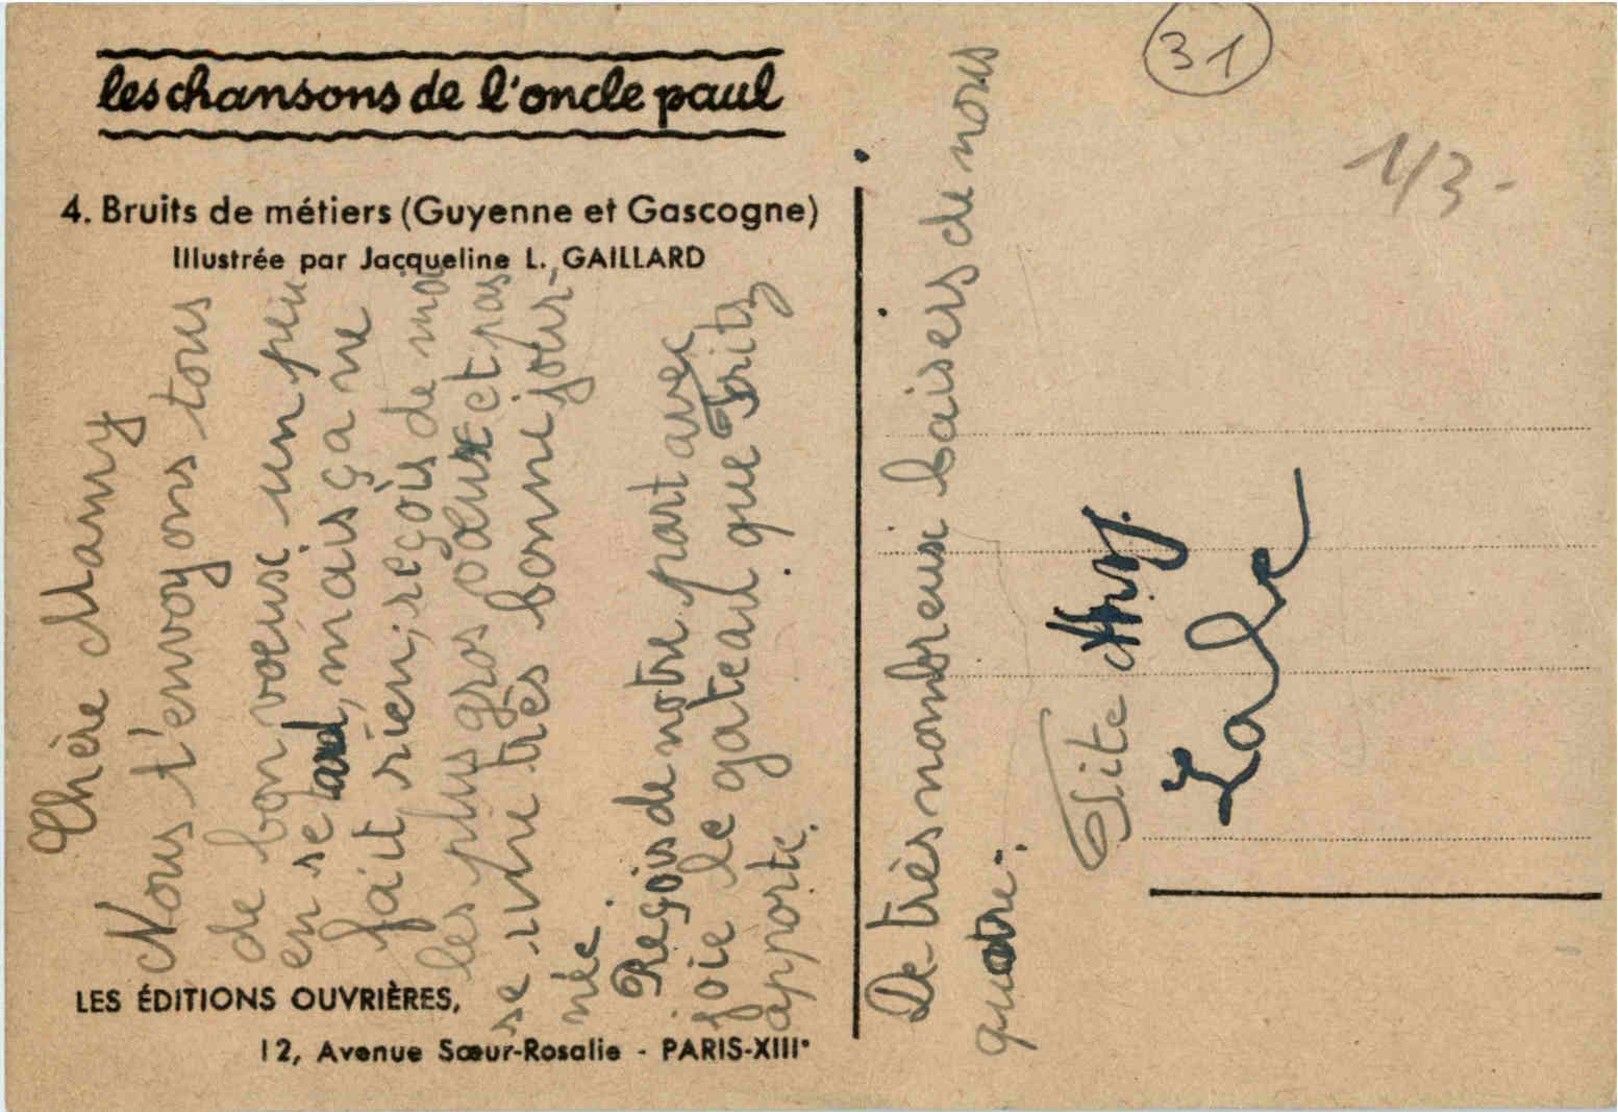 les chansons de l'oncle paul
4. Bruits de métiers (Guyenne et Gascogne)
Illustrée par Jacqueline L. GAILLARD
Chère Mamy
Nous t'envoyons tous
de bon voeusc un peu
en se tard, mais ça ne
fait rien; reçois de moi
les plus gros voeux et pas
se une très bonne jour-
née.
Reçois de notre part avec
joie le gateau que Frits
apporte.
LES ÉDITIONS OUVRIÈRES,
12, Avenue Sœur-Rosalie - PARIS-XIIIᵉ
De très nombreuse baisers de nous
quatre.
31